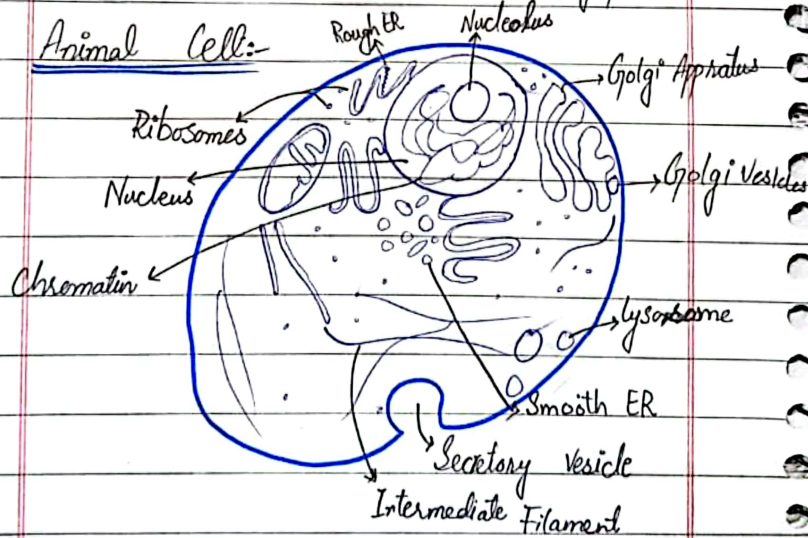 Animal Cell:-
Rough ER
Nucleolus
Golgi Appratus
Ribosomes
Nucleus
Golgi Vesicles
Chromatin
Lysosome
Smooth ER
Secretory Vesicle
Intermediate Filament